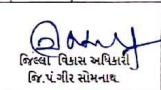 જિલ્લા વિકાસ અધિકારી
જિ.પં.ગીર સોમનાથ